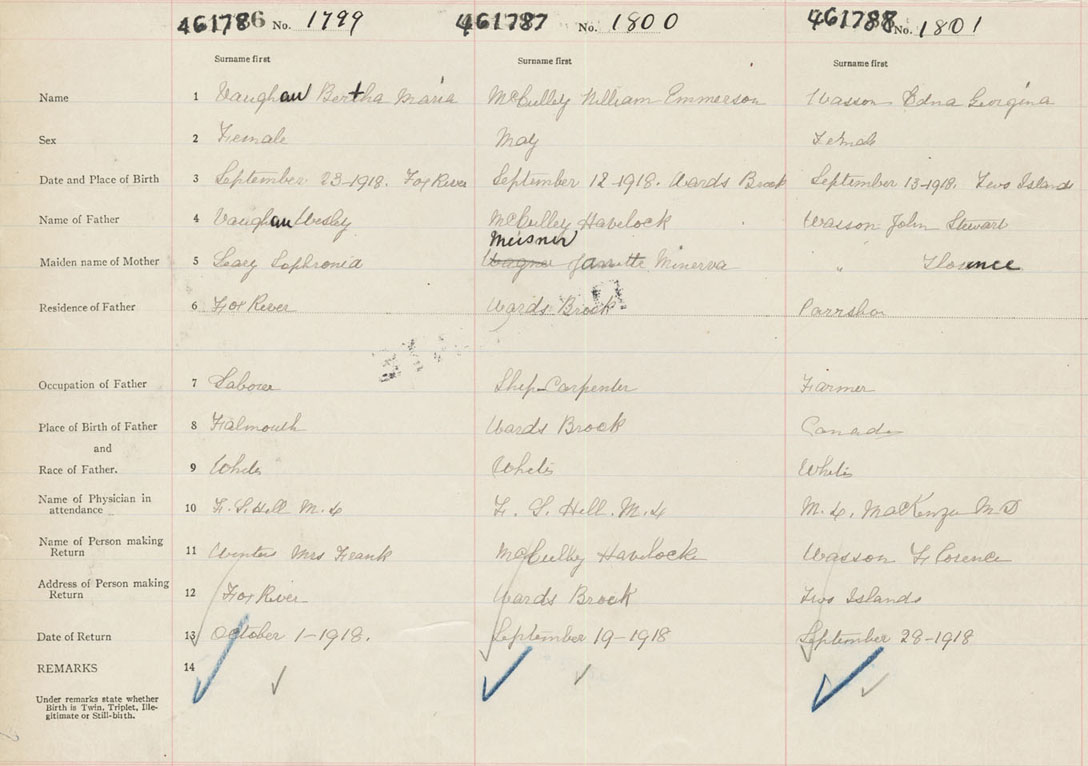 461786 No. 1799 461787 No. 1800 461788 No. 1801
Surname first Surname first Surname first
Name 1 Vaughan Bertha Maria McCulley William Emmerson Wasson Edna Georgina
Sex 2 Female Female
Date and Place of Birth 3 September 23-1918. Fox River September 12-1918. Wards Brook September 13-1918. Two Islands
Name of Father 4 Vaughan Wesley McCulley Havelock Wasson John Stewart
Meisner
Maiden name of Mother 5 Sophronia Wagner Janette Minerva " Florence
Residence of Father 6 Fox River Wards Brook Parrsboro
Occupation of Father 7 Laborer Ship-Carpenter Farmer
Place of Birth of Father 8 Falmouth Wards Brock Canada
and
Race of Father. 9 White White White
Name of Physician in
attendance 10 F. S. Hill M.D F. S. Hill. M.D M.D. MacKenzie M D
Name of Person making
Return 11 Winters Mrs Frank McCulley Havelocke Wasson Florence
Address of Person making
Return 12 Fox River Wards Brock Two Islands
Date of Return 13 October 1-1918. September 19-1918 September 28-1918
REMARKS 14
Under remarks state whether
Birth is Twin, Triplet, Ille-
gitimate or Still-birth.